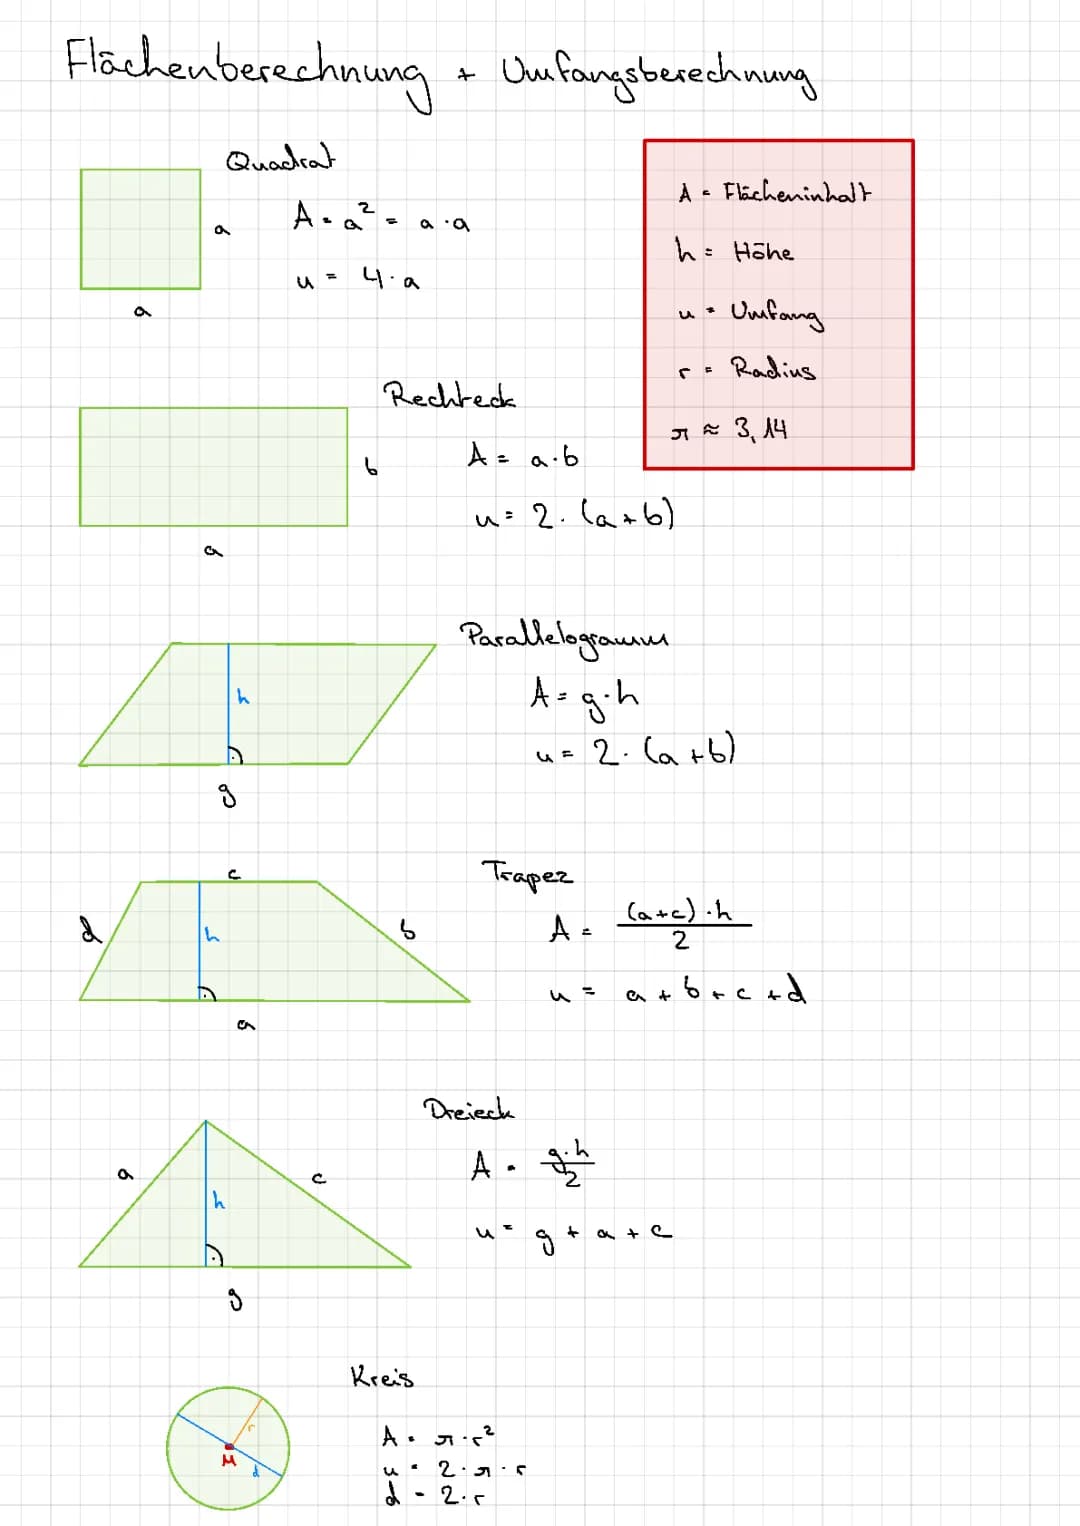 Flächenberechnung + Umfangsberechnung
Quadrat
A = a² = a · a
u = 4 · a
a
a
A = Flächeninhalt
h = Höhe
u = Umfang
r = Radius
π ≈ 3,14
Rechteck
A = a · b
u = 2 · (a + b)
b
a
Parallelogramm
A = g · h
u = 2 · (a + b)
h
g
Trapez
A = (a + c) · h / 2
u = a + b + c + d
c
d
h
b
a
Dreieck
A = g · h / 2
u = g + a + c
a
h
c
g
Kreis
A = π · r²
u = 2 · π · r
d = 2 · r
r
M
d